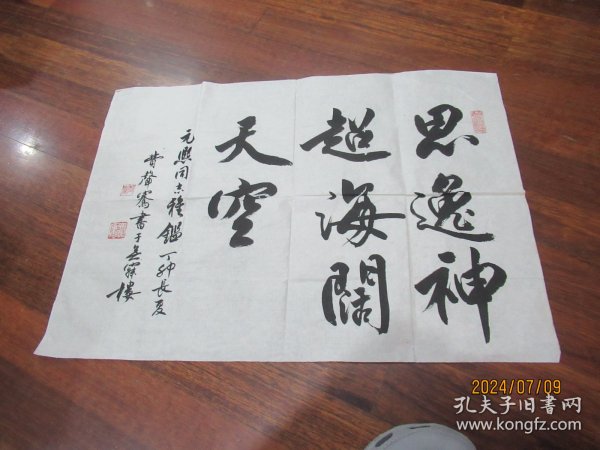 思逸神
超海阔
天空
元熙同志雅鑑 丁卯长夏
书于
楼
2024/07/09
孔夫子旧书网
www.kongfz.com